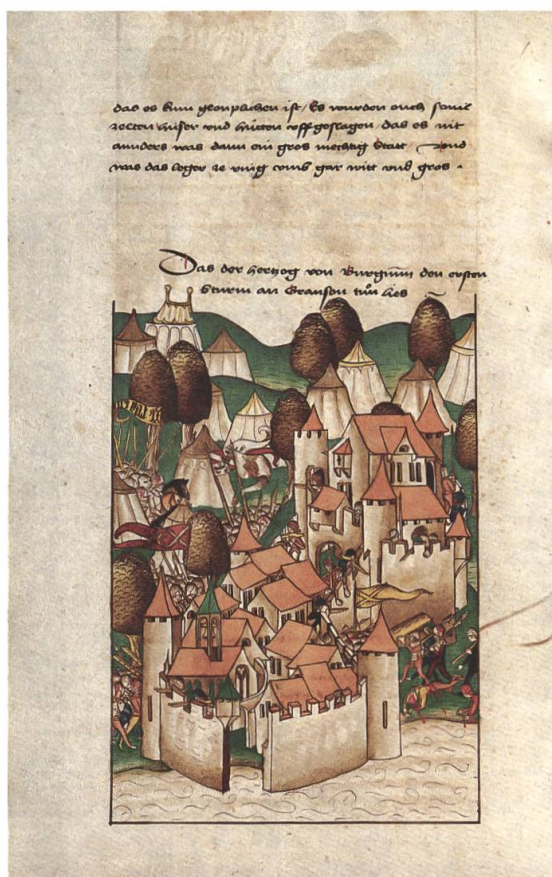 das es kum gelouplichen ist / Es wurden ouch souil
zelten huser und hutten uff geslagen das es nit
annders was dann ein gros mechtig Statt / unnd
was das leger ze ring umb gar witt und gros .
Das der hertzog von Burgunn den ersten
Sturm an Granson tuon lies